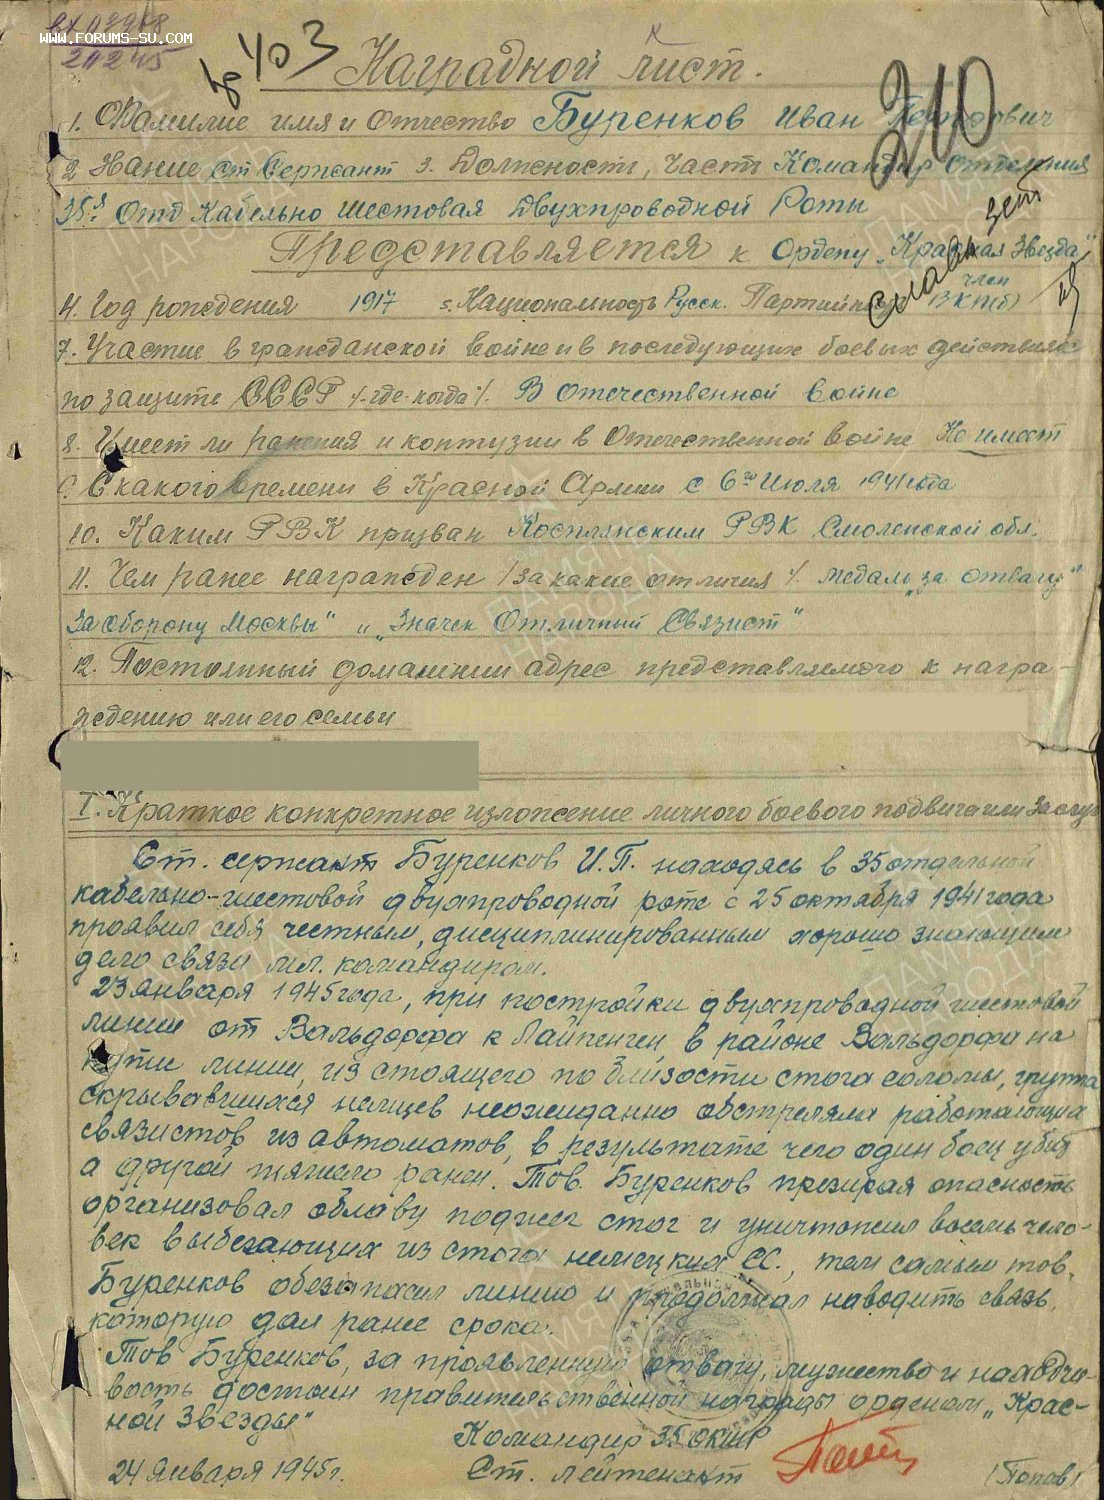 вх 03968
WWW.FORUMS-SU.COM
2.02.45
403
Наградной лист.
210
1. Фамилие имя и Отчество Буренков Иван
2 Звание Ст Сержант 3. Должность, часть Командир отделения
35й Отд Кабельно шестовая Двухпроводной Роты
Представляется к Ордену „Красная Звезда"
Славы 3 ст
4. Год рождения 1917 5. Национальность Русск. Партийн член ВКПб)
7. Участие в гражданской войне и в последующих боевых действиях
по защите СССР /.где-когда/. В Отечественной войне
8. Имеет ли ранения и контузии в Отечественной войне Не имеет
9. С какого времени в Красной Армии с 6го Июля 1941 года
10. Каким РВК призван Касплянским РВК Смоленской обл.
11. Чем ранее награжден /за какие отличия/. медаль „за отвагу"
За оборону Москвы" и „Значек Отличный Связист"
12. Постоянный домашнии адрес представляемого к награ-
ждению или его семьи
I. Краткое конкретное изложение личного боевого подвига или заслуг
Ст. сержант Буренков И.П. находясь в 35 отдельной
кабельно-шестовой двухпроводной роте с 25 октября 1941 года
проявил себя честным, дисциплинированным хорошо знающим
дело связи мл. командиром.
23 января 1945 года, при постройки двухпроводной шестовой
линии от Вальдорфа к Лайпенген, в районе Вальдорфа на
пути линии, из стоящего по близости стога соломы, группа
скрывавшихся немцев неожиданно обстреляла работающих
связистов из автоматов, в результате чего один боец убит
а другой тяжело ранен. Тов. Буренков презирая опасность
организовал облаву поджег стог и уничтожил восемь чело-
век выбегающих из стога немецких СС., тем самым тов.
Буренков обезопасил линию и продолжал наводить связь,
которую дал ранее срока.
Тов Буренков, за проявленную отвагу, мужество и находчи-
вость достоин правительственной награды орденом „Крас-
ной Звезды"
Командир 35 ОКШР
24 Января 1945г. Ст. лейтенант (Попов)